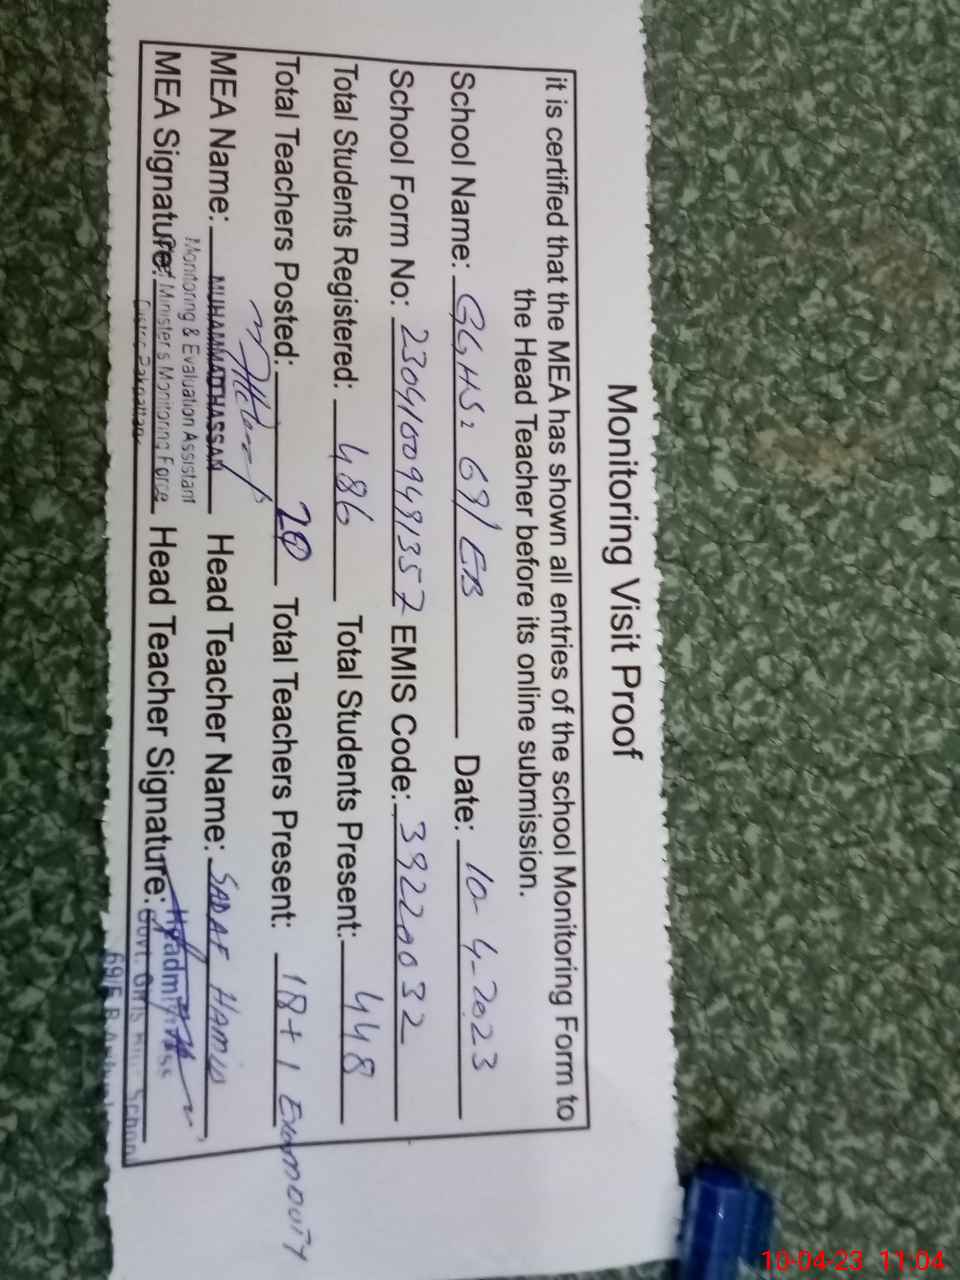 Monitoring Visit Proof
it is certified that the MEA has shown all entries of the school Monitoring Form to
the Head Teacher before its online submission.
School Name: GGHS, 69/EB Date: 10-4-2023
School Form No: 23041009491357 EMIS Code: 39220032
Total Students Registered: 486 Total Students Present: 448
Total Teachers Posted: 20 Total Teachers Present: 18+1 Exam DUTY
MEA Name: MUHAMMAD HASSAN Head Teacher Name: SADAF HAMID
Monitoring & Evaluation Assistant
MEA Signature: Minister's Monitoring Force Head Teacher Signature: Headmistress
Pakpattan Govt. Girls High School
69/E.B
10-04-23 11:04